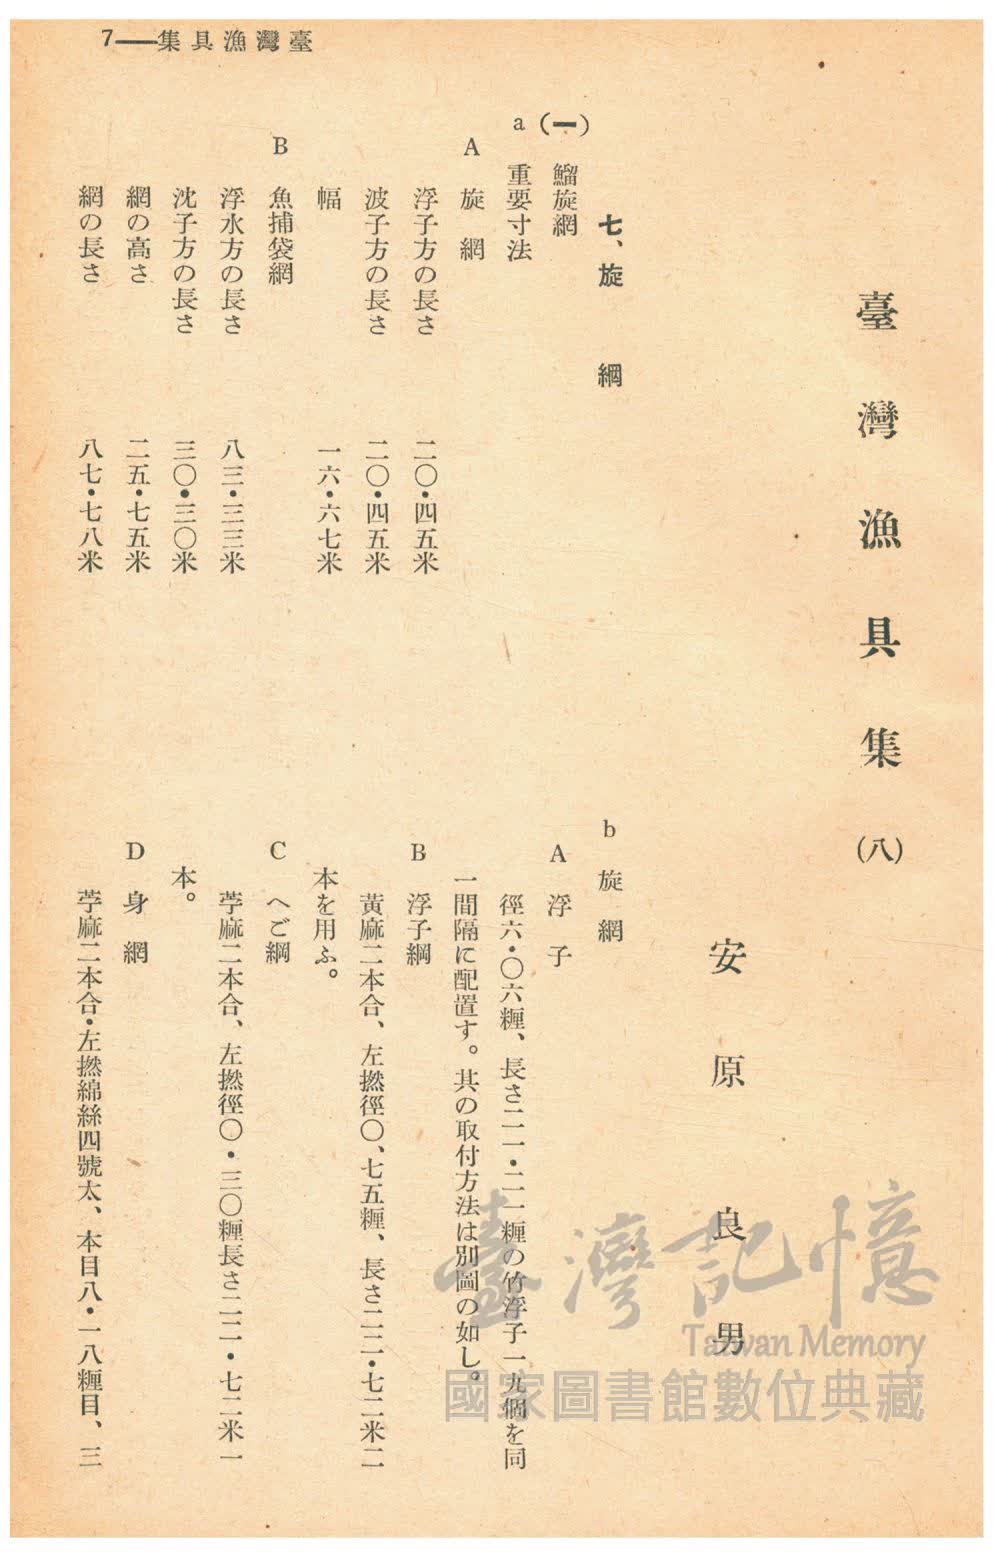 臺灣漁具集——7
臺灣漁具集(八)
安原良男
七、旋網
(一)鰡旋網
a 重要寸法
A 旋網
浮子方の長さ 二〇・四五米
波子方の長さ 二〇・四五米
幅 一六・六七米
B 魚捕袋網
浮水方の長さ 八三・三三米
沈子方の長さ 三〇・三〇米
網の高さ 二五・七五米
網の長さ 八七・七八米
b 旋網
A 浮子
徑六・〇六糎、長さ二一・二一糎の竹浮子一九個を同
一間隔に配置す。其の取付方法は別圖の如し。
B 浮子綱
黃麻二本合、左撚徑〇、七五糎、長さ二二・七二米二
本を用ふ。
C へご綱
苧麻二本合、左撚徑〇・三〇糎長さ二二・七二米一
本。
D 身網
苧麻二本合・左撚綿絲四號太、本目八・一八糎目、三
臺灣記憶
Taiwan Memory
國家圖書館數位典藏